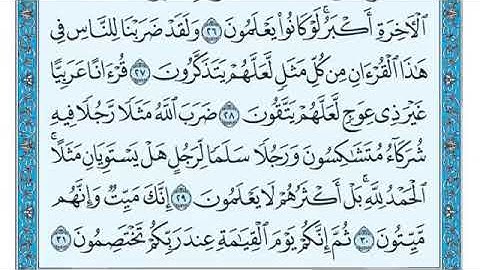 ٱلۡأٓخِرَةِ أَكۡبَرُۚ لَوۡ كَانُواْ يَعۡلَمُونَ ٢٦ وَلَقَدۡ ضَرَبۡنَا لِلنَّاسِ فِي
هَٰذَا ٱلۡقُرۡءَانِ مِن كُلِّ مَثَلٖ لَّعَلَّهُمۡ يَتَذَكَّرُونَ ٢٧ قُرۡءَانًا عَرَبِيًّا
غَيۡرَ ذِي عِوَجٖ لَّعَلَّهُمۡ يَتَّقُونَ ٢٨ ضَرَبَ ٱللَّهُ مَثَلٗا رَّجُلٗا فِيهِ
شُرَكَآءُ مُتَشَٰكِسُونَ وَرَجُلٗا سَلَمٗا لِّرَجُلٍ هَلۡ يَسۡتَوِيَانِ مَثَلًاۚ
ٱلۡحَمۡدُ لِلَّهِۚ بَلۡ أَكۡثَرُهُمۡ لَا يَعۡلَمُونَ ٢٩ إِنَّكَ مَيِّتٞ وَإِنَّهُم
مَّيِّتُونَ ٣٠ ثُمَّ إِنَّكُمۡ يَوۡمَ ٱلۡقِيَٰمَةِ عِندَ رَبِّكُمۡ تَخۡتَصِمُونَ ٣١